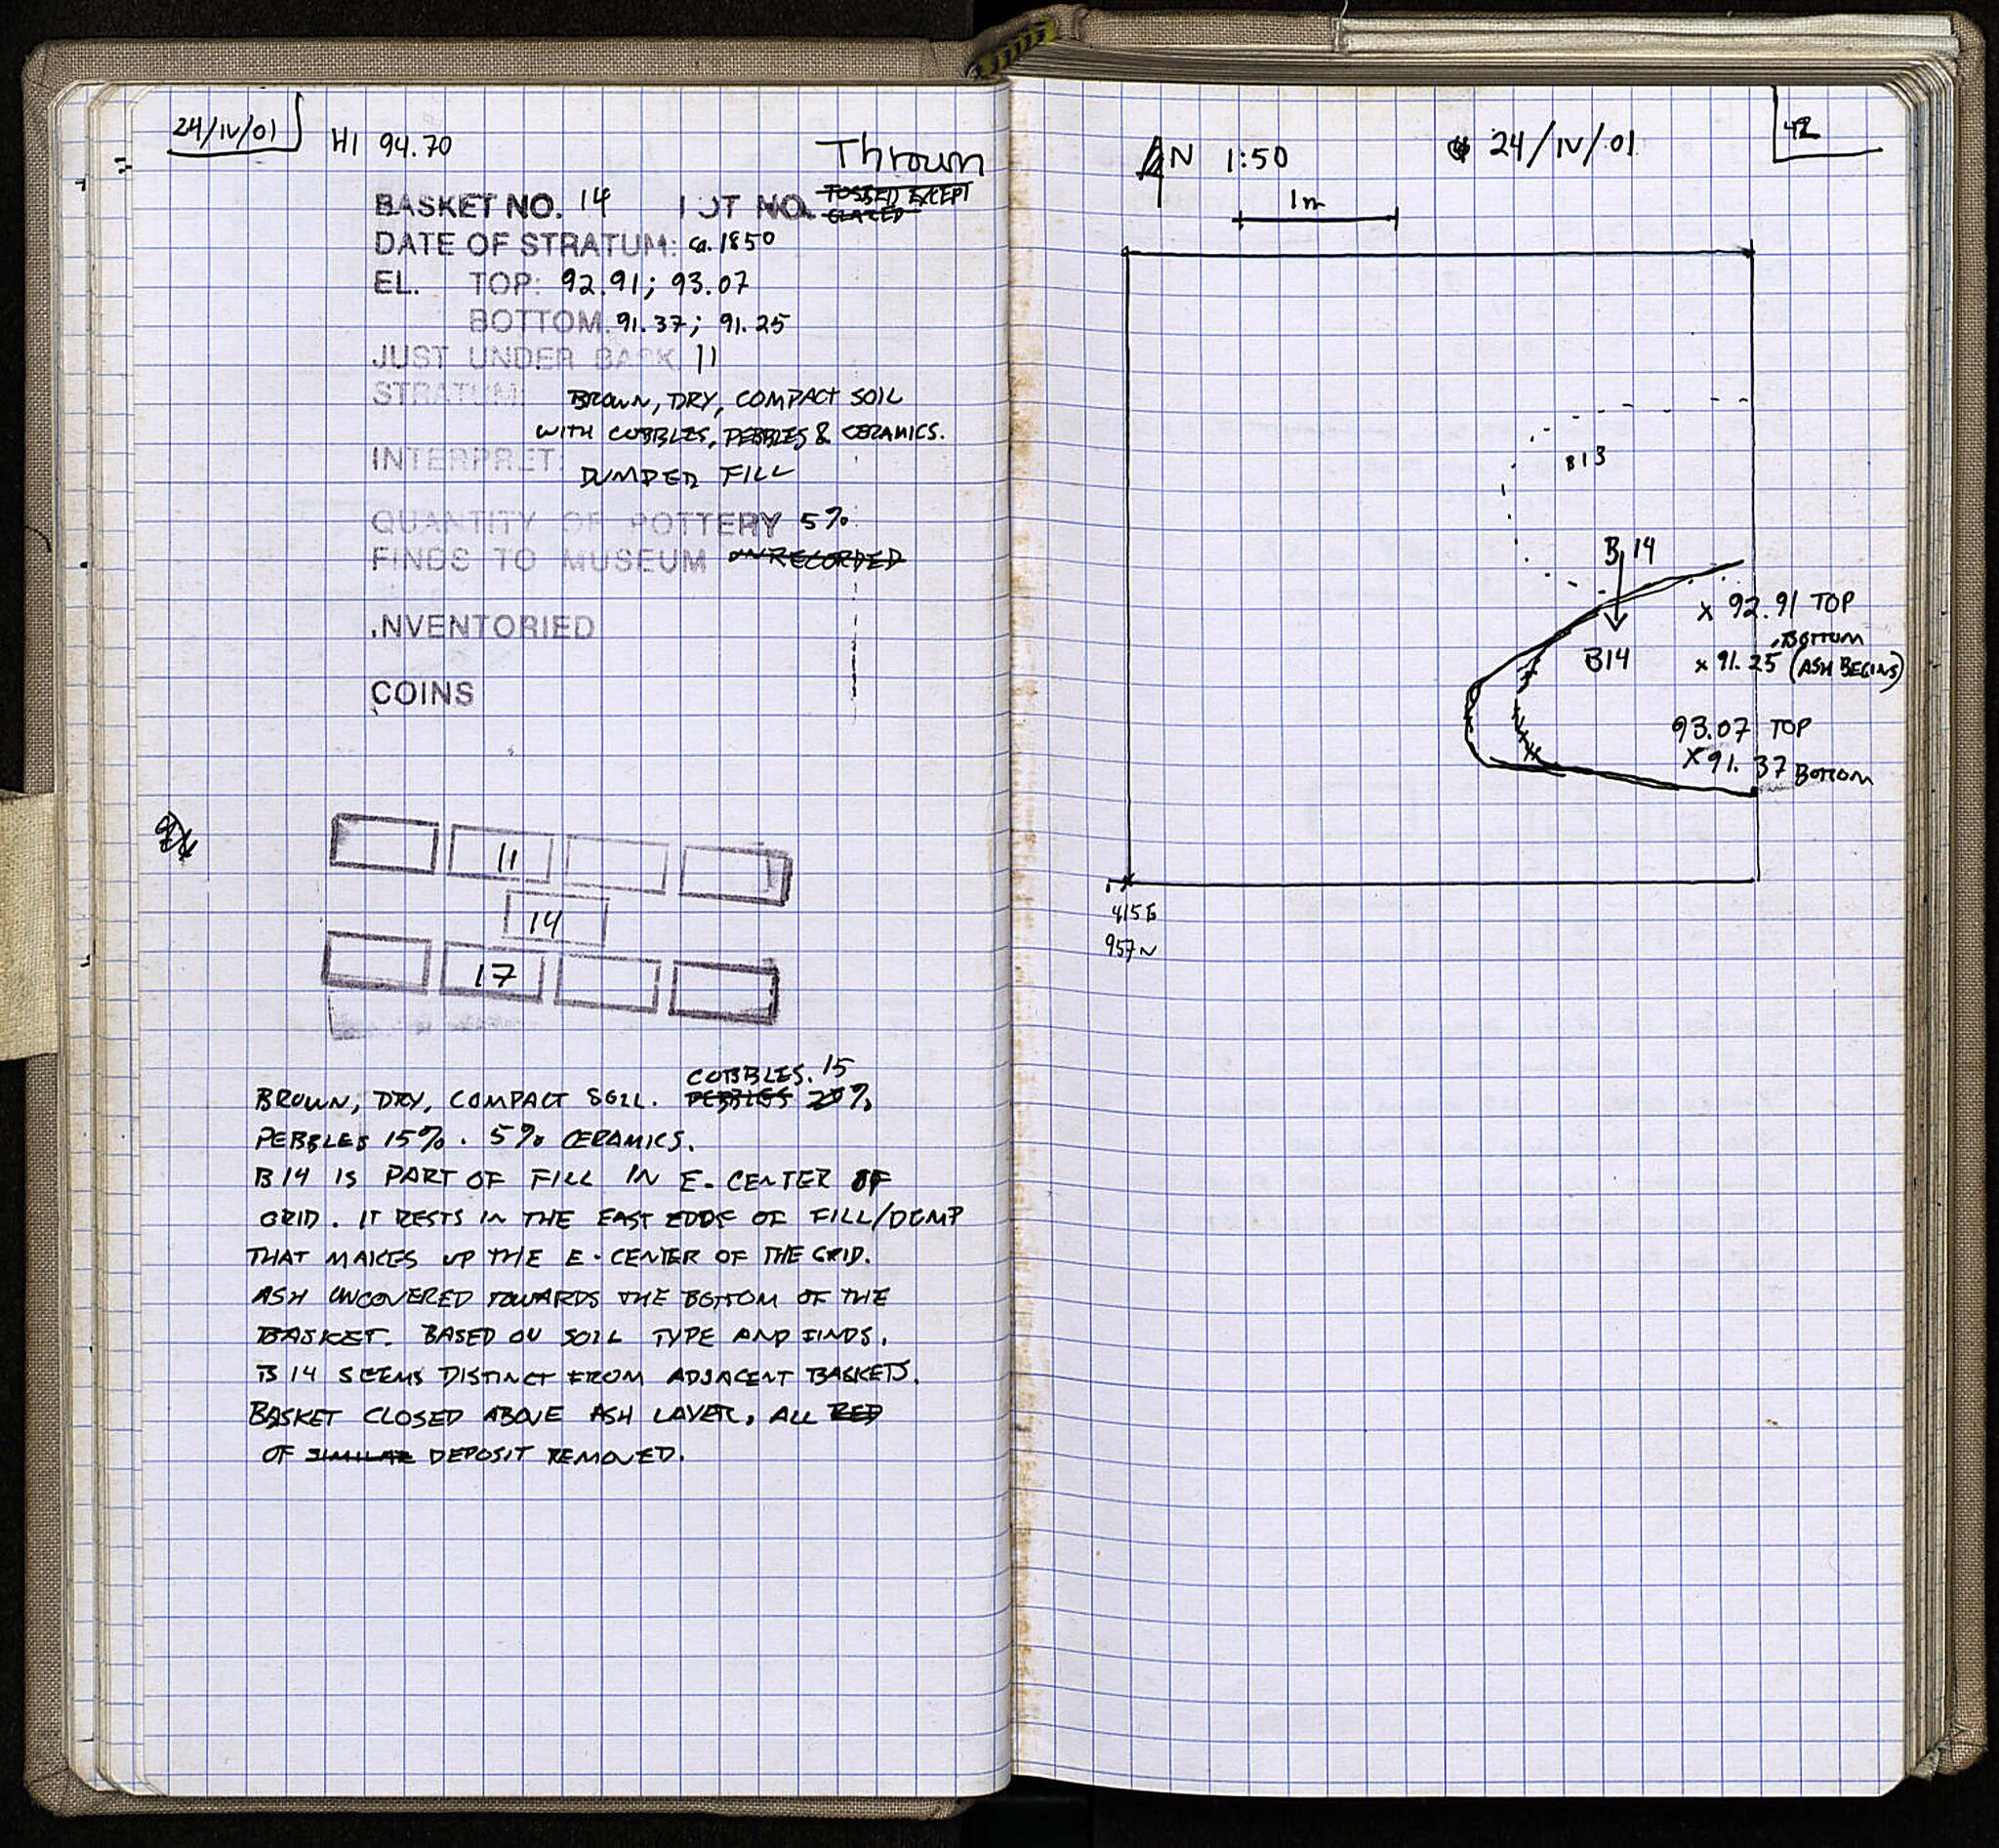 24/IV/01
HI 94.70
Thrown
BASKET NO. 14 LOT NO. TOSSED EXCEPT
GLAZED
DATE OF STRATUM: ca. 1850
EL. TOP: 92.91; 93.07
BOTTOM. 91.37; 91.25
JUST UNDER BASK 11
STRATUM: BROWN, DRY, COMPACT SOIL
WITH COBBLES, PEBBLES & CERAMICS.
INTERPRET: DUMPED FILL
QUANTITY OF POTTERY 5%
FINDS TO MUSEUM UNRECORDED
.NVENTORIED
COINS
11
14
17
COBBLES. 15
BROWN, DRY, COMPACT SOIL. PEBBLES 20%
PEBBLES 15%. 5% CERAMICS.
B14 IS PART OF FILL IN E. CENTER OF
GRID. IT RESTS IN THE EAST EDGE OF FILL/DUMP
THAT MAKES UP THE E. CENTER OF THE GRID.
ASH UNCOVERED TOWARDS THE BOTTOM OF THE
BASKET. BASED ON SOIL TYPE AND FINDS,
B14 SEEMS DISTINCT FROM ADJACENT BASKETS.
BASKET CLOSED ABOVE ASH LAYER, ALL RED
OF SIMILAR DEPOSIT REMOVED.
N 1:50
24/IV/01
42
1m
B13
B14
92.91 TOP
BOTTOM
B14
x 91.25 (ASH BEGINS)
93.07 TOP
x 91.37 BOTTOM
415E
957N